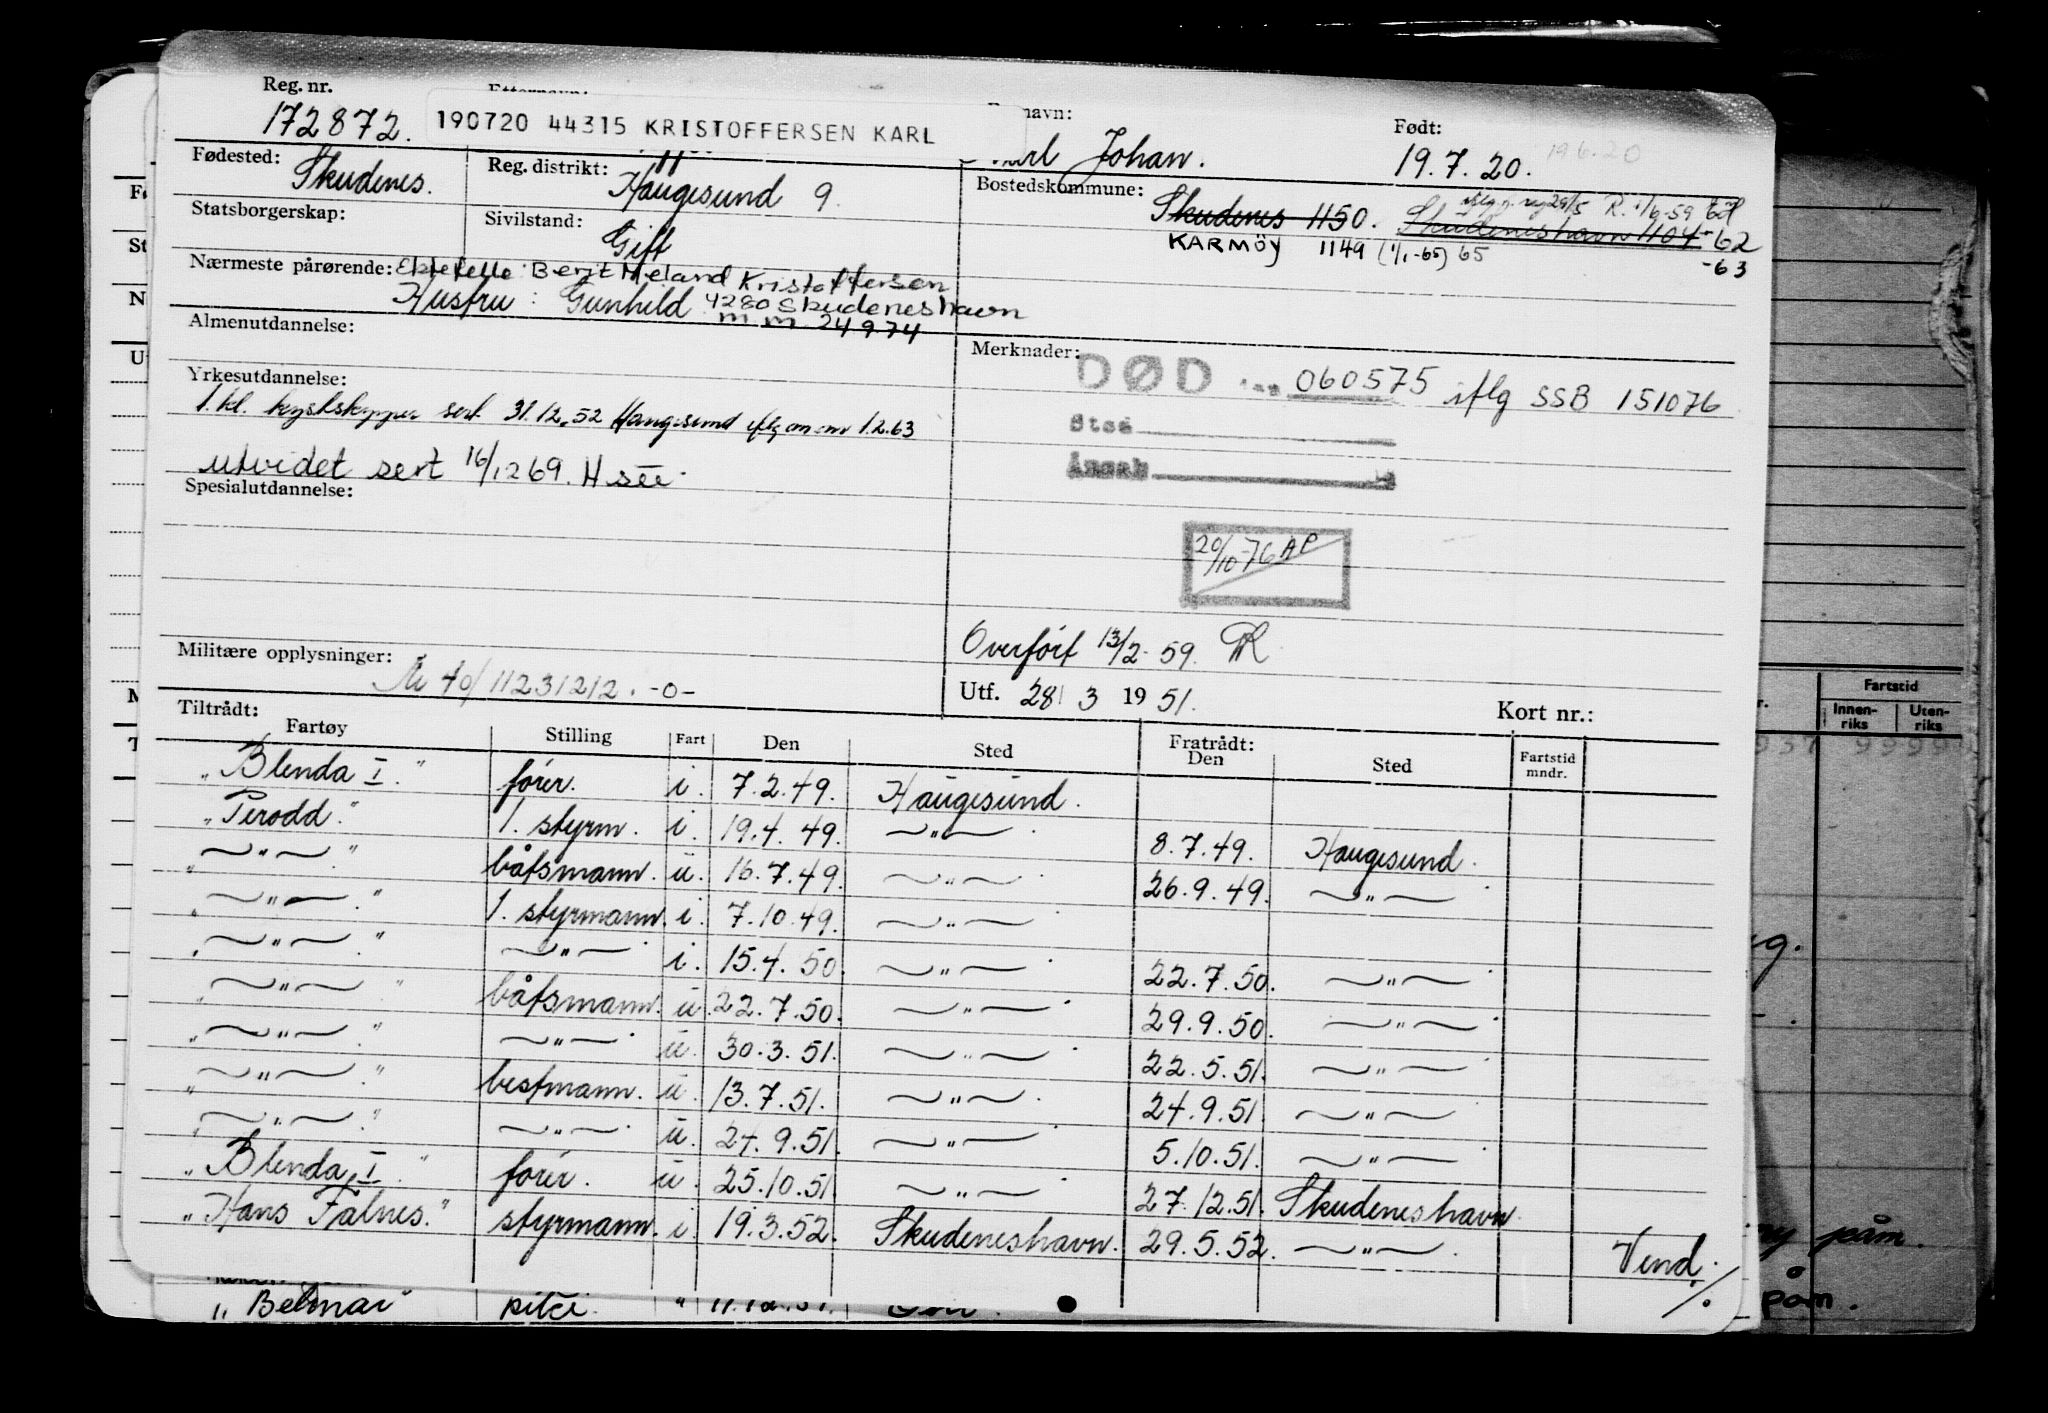 Reg. nr. Født:
172872. 190720 44315 KRISTOFFERSEN KARL Johan. 19.7.20. 19 6.20
Fødested: Skudenes. Reg. distrikt: Haugesund 9. Bostedskommune: Skudenes 1150. Skudeneshavn 1104 -62
Statsborgerskap: Sivilstand: Gift KARMÖY 1149 (1/1-65) 65 -63
Nærmeste pårørende: Ektefelle: Berit Meland Kristoffersen
Hustru: Gunhild 4280 Skudeneshavn
m.m. 24 9 74
Almenutdannelse: Merknader:
DØD 060575 iflg SSB 151076
Yrkesutdannelse:
1. kl. kystskipper sert. 31.12.52 Haugesund 1.2.63
Sted
utvidet sert 16/12 69. H
Årsak
Spesialutdannelse:
20/10-76 AP
Overført 13/2-59.
Militære opplysninger: 40/11231212. -0-
Utf. 28/ 3 1951. Kort nr.:
Tiltrådt: Fratrådt:
Fartøy Stilling Fart Den Sted Den Sted Fartstid mndr.
„Blenda I." fører. i. 7.2.49. Haugesund.
„Perodd." 1. styrm. i. 19.4.49. —"— 8.7.49. Haugesund.
„—"—." båtsmann. u. 16.7.49. —"— 26.9.49. —"—
„—"—." 1. styrmann. i. 7.10.49. —"—
„—"—." —"— i. 15.4.50. —"— 22.7.50. —"—
„—"—" båtsmann. u. 22.7.50. —"— 29.9.50. —"—
„—"—." —"— u. 30.3.51. —"— 22.5.51. —"—
„—"—." bestmann. u. 13.7.51. —"— 24.9.51. —"—
„—"—." —"— u. 24.9.51. —"— 5.10.51. —"—
„Blenda I." fører. u. 25.10.51 —"— 27.12.51. Skudeneshavn.
„Hans Falnes." styrmann. i. 19.3.52. Skudeneshavn. 29.5.52. —"— Vend.
Fartstid
Innen-riks Uten-riks
påm.
påm.